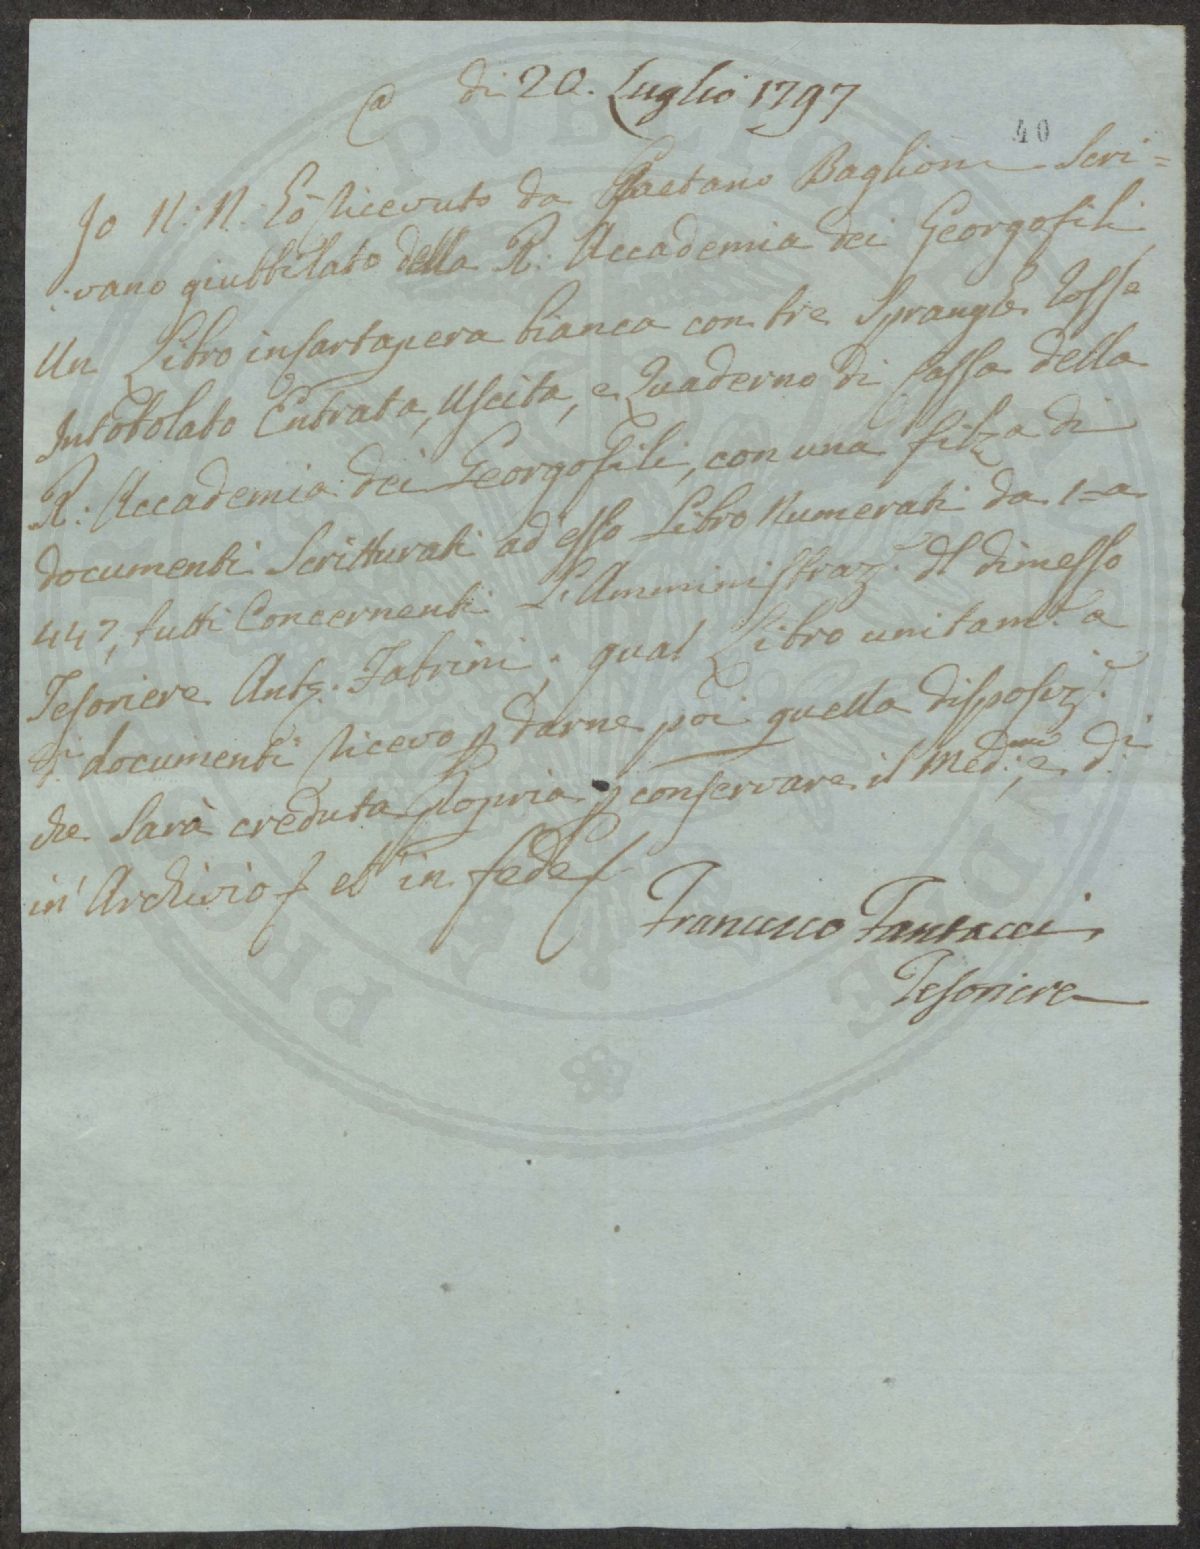 @ di 20. Luglio 1797
40
Io N: N: hò ricevuto da Gaetano Baglioni Scri=
vano giubbilato della R. Accademia dei Georgofili
Un Libro in Cartapera bianca con tre Spranghe Rosse
Intotolato Entrata, Uscita, e Quaderno di Cassa della
R: Accademia dei Georgofili, con una filza di
documenti Scritturati ad esso Libro Numerati da 1- a
447, tutti Concernenti L'Amministraz.e del dimesso
Tesoriere Ant.o Fabrini, qual Libro unitam.e a
d.i documenti ricevo p darne poi quella disposiz.e
che Sarà creduta propria p conservare il Med.mo, e di
in Archivio et in fede
Francesco Fantacci
Tesoriere
PVBLICAE